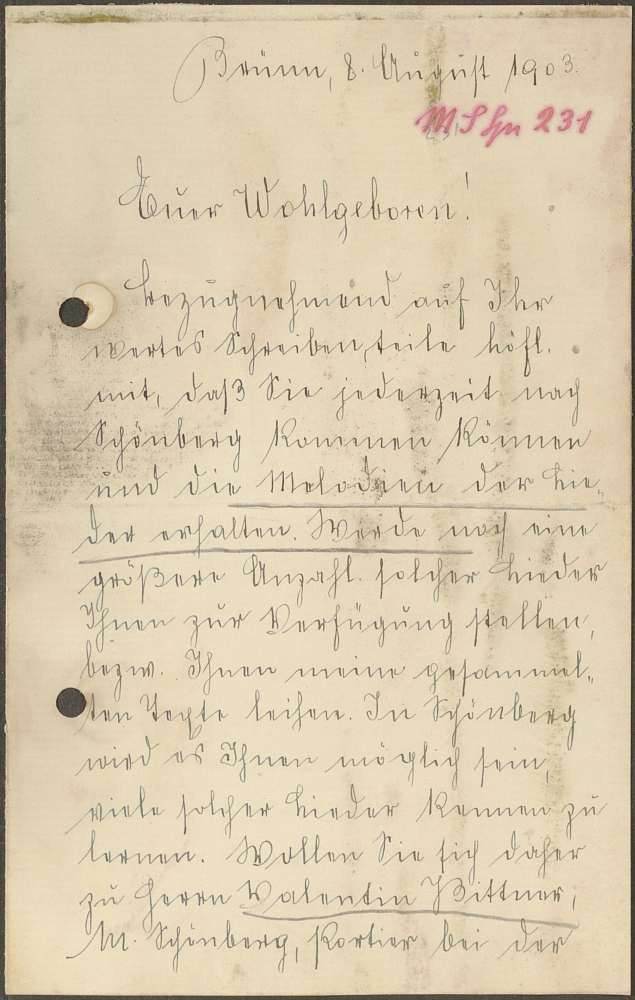 Brünn, 8. August 1903.
M S Spn 231
Euer Wohlgeboren!
Bezugnehmend auf Ihr
wertes Schreiben, teile höfl.
mit, daß Sie jederzeit nach
Schönberg kommen können
und die Melodien der Lie-
der erhalten. Werde noch eine
größere Anzahl solcher Lieder
Ihnen zur Verfügung stellen,
bezw. Ihnen meine gesammel-
ten Texte leihen. In Schönberg
wird es Ihnen möglich sein,
viele solcher Lieder kennen zu
lernen. Wollen Sie sich daher
zu Herrn Valentin Bittner,
M. Schönberg, Portier bei der